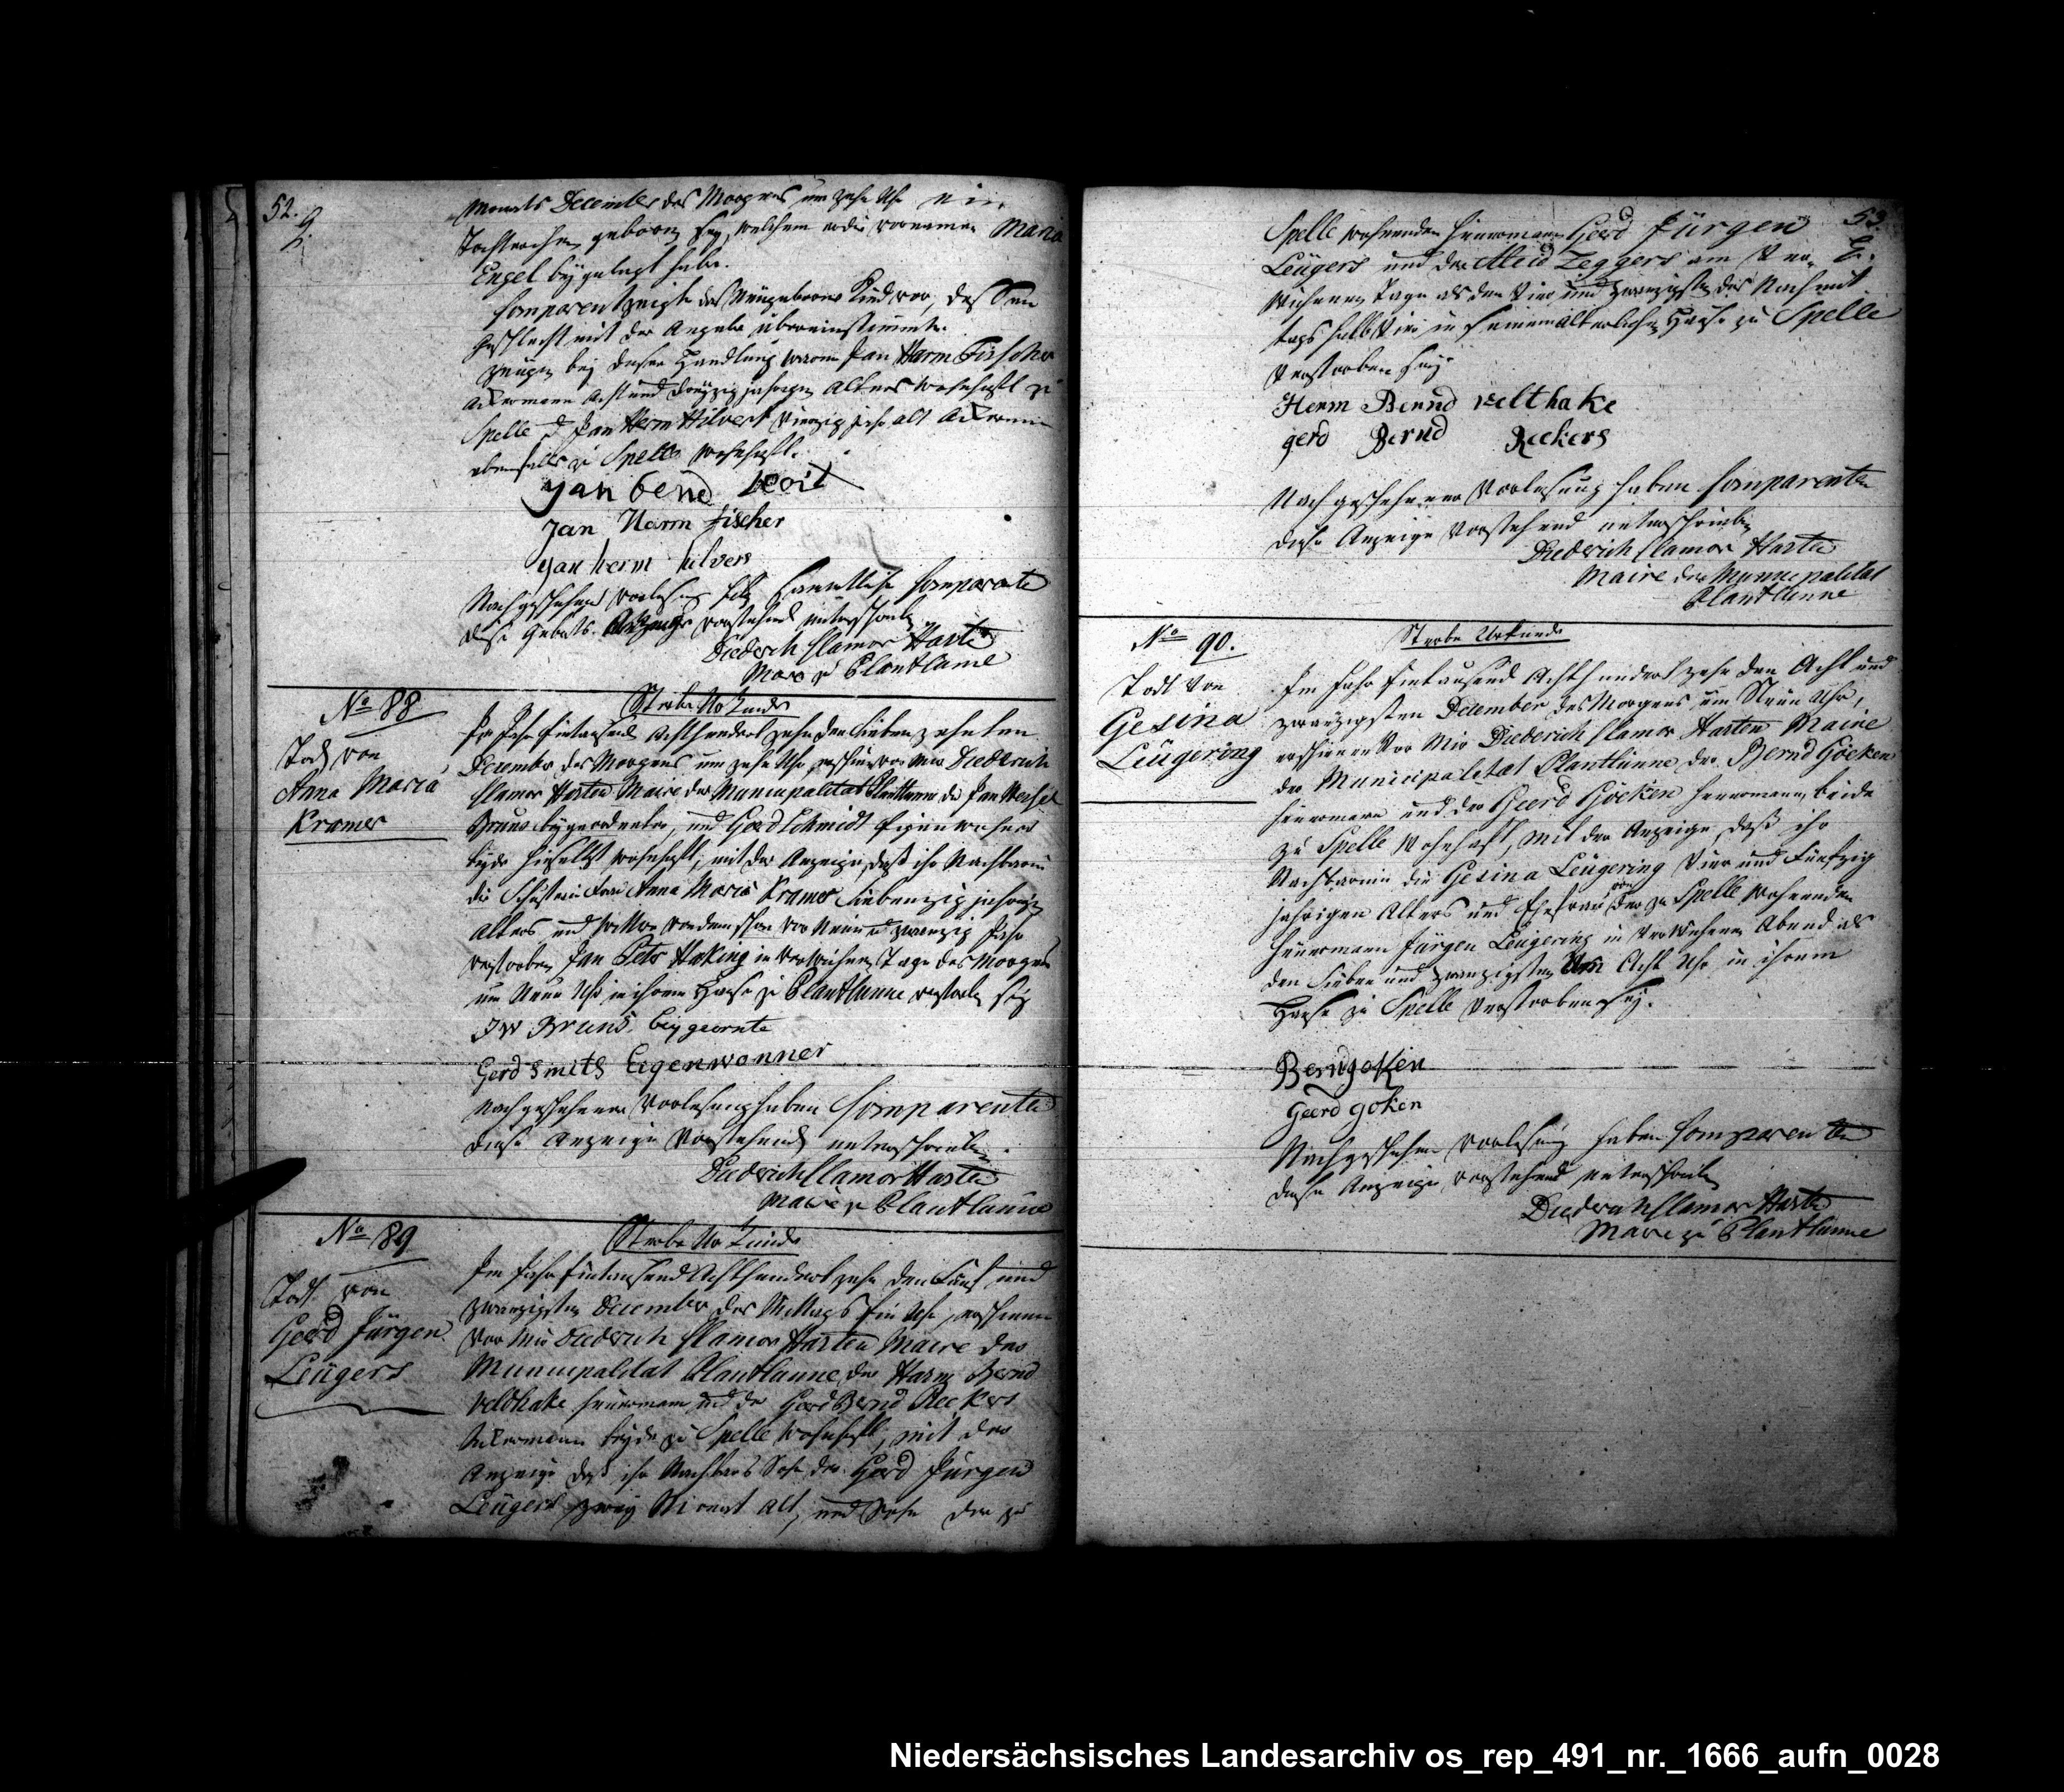 52.
Monats December des Morgens um zehn Uhr ein
Töchterchen geboren sey, welchem er die vornamen Maria
Engel beygelegt habe.
Comparent zeigte das Neugeborne Kind vor, dessen
Geschlecht mit der Angabe übereinstimmte.
Zeugen bey dieser Handlung waren Jan Harm Fischer
Ackermann Acht und dreyzig jahrigen Alters wohnhaft zu
Spelle u Jan Herm Hilvers Vierzig Jahr alt Ackermann
ebenfalls zu Spelle wohnhaft.
Jan bend
Jan Harm fischer
yan herm hilvers
Nach geschehener Vorlesung haben sammtliche Comparenten
diese Geburts Anzeige vorstehend unterschrieben
Diederich Clamor Harten
Maire zu Plantlünne
No 88
Tod von
Anna Maria
Kramer
Sterbe Urkunde
Im Jahr Eintausend Achthundert zehn den Sieben zehnten
December des Morgens um zehn Uhr, erschien vor Mir Diederich
Clamor Harten Maire der Municipalitat Plantlünne der Jan Wessel
Bruns beygeordneter, und Gerd Schmidt Eigenwohner
beyde hieselbst wohnhaft, mit der Anzeige, daß ihr Nachbarin
die Anna Maria Kramer Siebenzig jahrigen
Alters und Wittwe von dem schon vor Neun u zwanzig Jahr
verstorben Jan Peter Haking in verwichenen Tage des Morgens
um Neun Uhr in ihrem Hause zu Plantlünne verstorben sey
JW Bruns, beygeornte
Gerd smits Eigenwonner
Nach geschehener Vorlesung haben Comparenten
diese Anzeige Vorstehend unterschrieben.
Diedrich Clamor Harten
Maire zu Plantlünne
No 89
Todt von
Geerd Jürgen
Leügers
Sterbe Urkunde
Im Jahr Eintausend Achthundert zehn den Fünf und
zwanzigsten December des Mittags Ein Uhr, erschienen
Vor Mir Diedrich Clamor Harten Maire der
Municipalitat Plantlünne, der Harm Bernd
Veldhake Heuermann und der Gerd Bernd Reckers
Ackermann beyde zu Spelle wohnhaft, mit der
Anzeige daß ihr Nachbars Sohn der Gerd Jürgen
Leügers zwey Monat alt, und Sohn der zu
53.
Spelle wohnenden Heuermann Geerd Jürgen
Leügers und der Aleid Zeggers am Ver-
wichenen Tage als den Vier und zwanzigsten des Nachmit
tags halb Vier in seinem alterlichen Hause zu Spelle
Verstorben sey.
Herm Bernd velthake
gerd Bernd Reekers
Nach geschehener Vorlesung haben Comparenten
diese Anzeige Vorstehend unterschrieben
Diederich Clamor Harten
Maire der Municipalitat
Plantlünne
No 90.
Todt Von
Gesina
Leügering
Sterbe Urkunde
Im Jahr Eintausend Achthundert zehn den Acht und
zwanzigsten December des Morgens um Neun Uhr,
erschienen Vor Mir Diederich Clamor Harten Maire
der Municipalitat Plantlünne, der Bernd Göeken
Heuermann und der Geerd Göeken Heuermann, beide
zu Spelle Wohnhaft, mit der Anzeige, daß ihr
Nachbarinn die Gesina Leügering Vier und Fünfzig
jahrigen Alters und Ehefrau von der zu Spelle Wohnenden
Heuermann Jürgen Leügering in Verwichenen Abend als
den Sieben und zwanzigsten Um Acht Uhr in ihrem
Hause zu Spelle Verstorben sey.
Bernd goken
Geerd goken
Nach geschehener Vorlesung haben Comparenten
diese Anzeige vorstehend unterschrieben
Diedrich Clamor Harten
Maire zu Plantlünne
Niedersächsisches Landesarchiv os_rep_491_nr._1666_aufn_0028